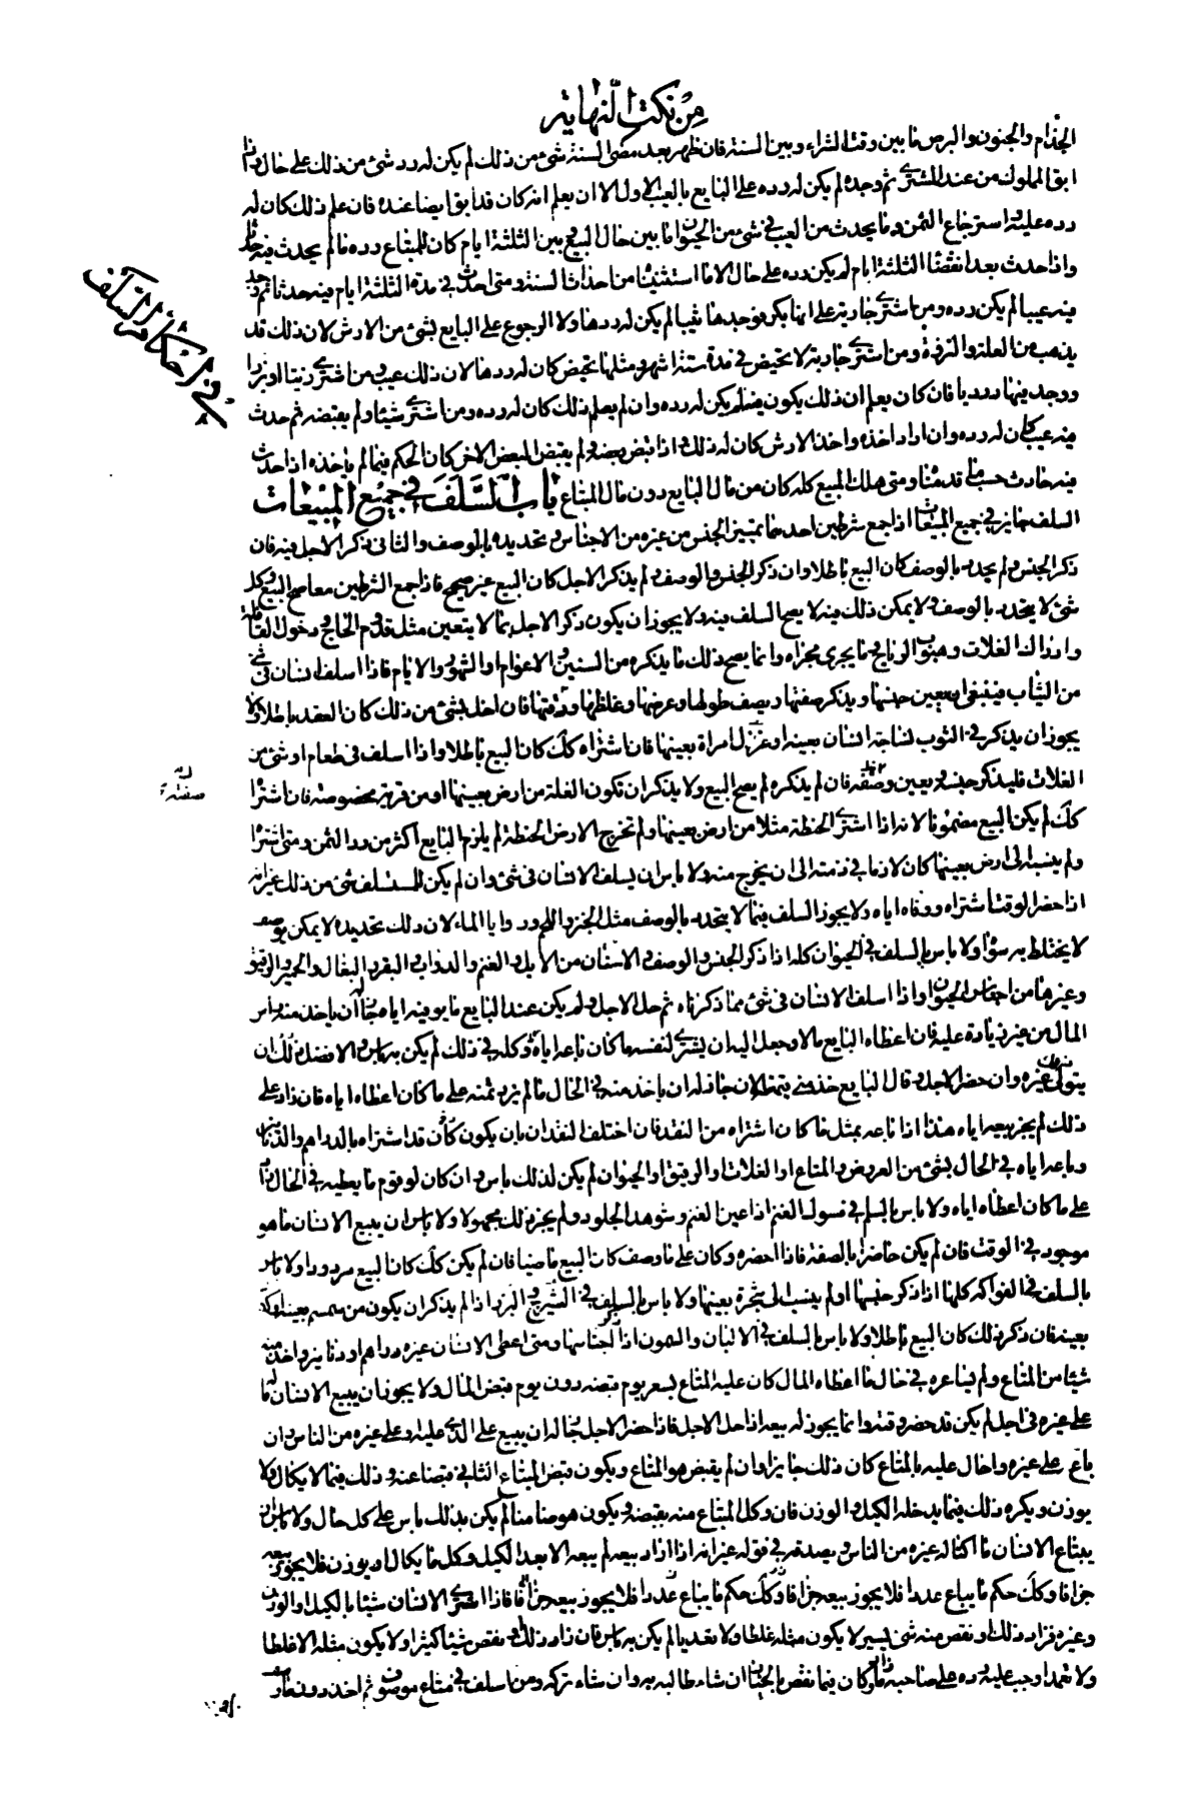 من نكت النهاية
الجذام والجنون والبرص ما بين وقت الشراء وبين السنة فان ظهر بعد مضى السنة شئ من ذلك لم يكن له رد شئ من ذلك على حال وان
ابق المملوك من عند المشترى ثم وجده لم يكن له رده على البايع بالعيب الاول الا ان يعلم انه كان قد ابق ايضا عنده فان علم ذلك كان له
رده عليه و استرجاع الثمن وما يحدث من العيب فى شئ من الحيوان ما بين حال البيع وبين الثلثة ايام كان للمبتاع رده ما لم يحدث فيه حدثا
واذا حدث بعد انقضاء الثلثة ايام لم يكن رده على حال الا ما استثنيناه من احداث السنة ومتى احدث فى مدة الثلثة ايام فيه حدثا ثم وجد
فيه عيبا لم يكن رده ومن اشترى جارية على انها بكر فوجدها ثيبا لم يكن له ردها ولا الرجوع على البايع بشئ من الارش لان ذلك قد
يذهب من العلة والنزفة ومن اشترى جارية لا تحيض فى مدة ستة اشهر ومثلها تحيض كان له ردها لان ذلك عيب ومن اشترى زيتا او بزرا
ووجد فيها درديا فان كان يعلم ان ذلك يكون فيه لم يكن له رده وان لم يعلم ذلك كان له رده ومن اشترى شيئا ولم يقبضه ثم حدث
فيه عيب كان له رده وان اراد اخذه واخذ الارش كان له ذلك و اذا قبض بعضه ولم يقبض البعض الاخر كان الحكم فيما لم ياخذه اذا حدث
فيه حادث حسب ما قدمناه ومتى هلك المبيع كله كان من مال البايع دون مال المبتاع باب السلف فى جميع المبيعات
السلف جايز فى جميع المبيعات اذا جمع شرطين احدهما تمييز الجنس من غيره من الاجناس و تحديده بالوصف والثانى ذكر الاجل فيه فان
ذكر الجنس ولم يحدد بالوصف كان البيع باطلا وان ذكر الجنس والوصف ولم يذكر الاجل كان البيع غير صحيح فاذا جمع الشرطين معا صح البيع وكل
شئ لا يتحدد بالوصف ولا يمكن ذلك فيه لا يصح السلف فيه ولا يجوز ان يكون ذكر الاجل بما لا يتعين مثل قدوم الحاج ودخول القافلة
وادراك الغلات وهبوب الرياح وما يجرى مجراه وانما يصح ذلك ما يذكره من السنين و الاعوام او الشهور والايام فاذا اسلف انسان فى شئ
من الثياب فينبغى ان يعين جنسها ويذكر صفتها ويصف طولها وعرضها وغلظها ودقتها فان اخل بشئ من ذلك كان العقد باطلا ولا
يجوز ان يذكر فى الثوب نساجة انسان بعينه او غزل امراة بعينها فان اشتراه كذلك كان البيع باطلا واذا اسلف فى طعام او شئ من
الغلات فليذكر جنسه ويعين وصفه فان لم يذكره لم يصح البيع ولا يذكر ان تكون الغلة من ارض بعينها او من قرية مخصوصة فان اشتراه
كذلك لم يكن البيع مضمونا لانه اذا اشترى الحنطة مثلا من ارض بعينها ولم تخرج الارض الحنطة لم يلزم البايع اكثر من رد الثمن ومتى اشتراه
ولم ينسب الى ارض بعينها كان لازما فى ذمته الى ان يخرج منه ولا باس ان يسلف الانسان فى شئ وان لم يكن للمستسلف شئ من ذلك غير انه
اذا حضر الوقت اشتراه ووفاه اياه ولا يجوز السلف فيما لا يتحدد بالوصف مثل الخبز واللحم وروايا الماء لان ذلك تحديده لا يمكن بوصف
لا يختلط به سواه ولا باس بالسلف فى الحيوان كله اذا ذكر الجنس والوصف و الاسنان من الابل و الغنم والدواب و البقر و البغال والحمير والرقيق
وغيرها من اجناس الحيوان واذا اسلف الانسان فى شئ مما ذكرناه ثم حل الاجل ولم يكن عند البايع ما يوفيه اياه جاز له ان ياخذ منه راس
المال من غير زيادة عليه فان اعطاه البايع مالا وجعل اليه ان يشترى لنفسه ما كان باعه اياه وكله فى ذلك لم يكن به باس و الافضل فى ذلك ان
يتولى غيره وان حضر الاجل و قال البايع خذ منى جاز له ان ياخذ منه فى الحال ما لم يزد ثمنه على ما كان اعطاه اياه فان زاد على
ذلك لم يجز بيعه اياه هذا اذا باعه بمثل ما كان اشتراه من النقد فان اختلف النقدان بان يكون كان قد اشتراه بالدراهم والدنانير
وباعه اياه فى الحال بشئ من العروض والمتاع او الغلات او الرقيق او الحيوان لم يكن لذلك باس وان كان لو قوم ما يعطيه فى الحال
على ما كان اعطاه اياه ولا باس بالسلم فى مسوك الغنم اذا عين الغنم وشوهد الجلود ولم يجز ذلك مجهولا ولا باس ان يبيع الانسان ما هو
موجود فى الوقت فان لم يكن حاضرا بالصفة فاذا احضره وكان على ما وصف كان البيع ماضيا فان لم يكن كذلك كان البيع مردودا ولا باس
بالسلف فى الفواكه كلها اذا ذكر جنسها او لم ينسب الى شجرة بعينها ولا باس بالسلف فى الشيرج و البزر اذا لم يذكر ان يكون من سمسم بعينه او كتان
بعينه فان ذكر ذلك كان البيع باطلا ولا باس بالسلف فى الالبان والسمون اذا ذكر اجناسها ومتى اعطى الانسان غيره دراهم او دنانير واخذ منه
شيئا من المتاع ولم يساعره فى حال ما اعطاه المال كان عليه المتاع بسعر يوم قبضه دون يوم قبض المال ولا يجوز ان يبيع الانسان ماله
على غيره فى اجل لم يكن قد حضر وقته وانما يجوز له بيعه اذا حل الاجل فاذا حضر الاجل جاز له ان يبيع على الذى عليه او على غيره من الناس وان
باع على غيره واحال عليه بالمتاع كان ذلك جايزا وان لم يقبض هو المتاع ويكون قبض المبتاع الثانى قبضا عنه و ذلك فيما لا يكال ولا
يوزن ويكره ذلك فيما يدخله الكيل و الوزن فان وكل المبتاع منه بقبضه ويكون هو ضامنا لم يكن بذلك باس على كل حال ولا باس ان
يبتاع الانسان ما اكتاله غيره من الناس و يصدقه فى قوله غير انه اذا اراد بيعه لم يبعه الا بعد الكيل وكل ما يكال او يوزن فلا يجوز بيعه
جزافا وكذلك حكم ما يباع عددا فلا يجوز بيعه جزافا وكذلك حكم ما يباع عددا فلا يجوز بيعه جزافا فاذا اشترى الانسان شيئا بالكيل او الوزن
وغيره فزاد ذلك او نقص منه شئ يسير لا يكون مثله غلطا ولا تعديا لم يكن به باس فان زاد ذلك و نقص شيئا كثيرا ولا يكون مثله الا غلطا
ولا تعمدا وجب عليه رده على صاحبه ما زاد وكان فيما نقص بالخيار ان شاء طالبه به وان شاء تركه ومن اسلف فى متاع موصوف ثم اخذ دون ما وصفه
فى احكام السلف
صفته